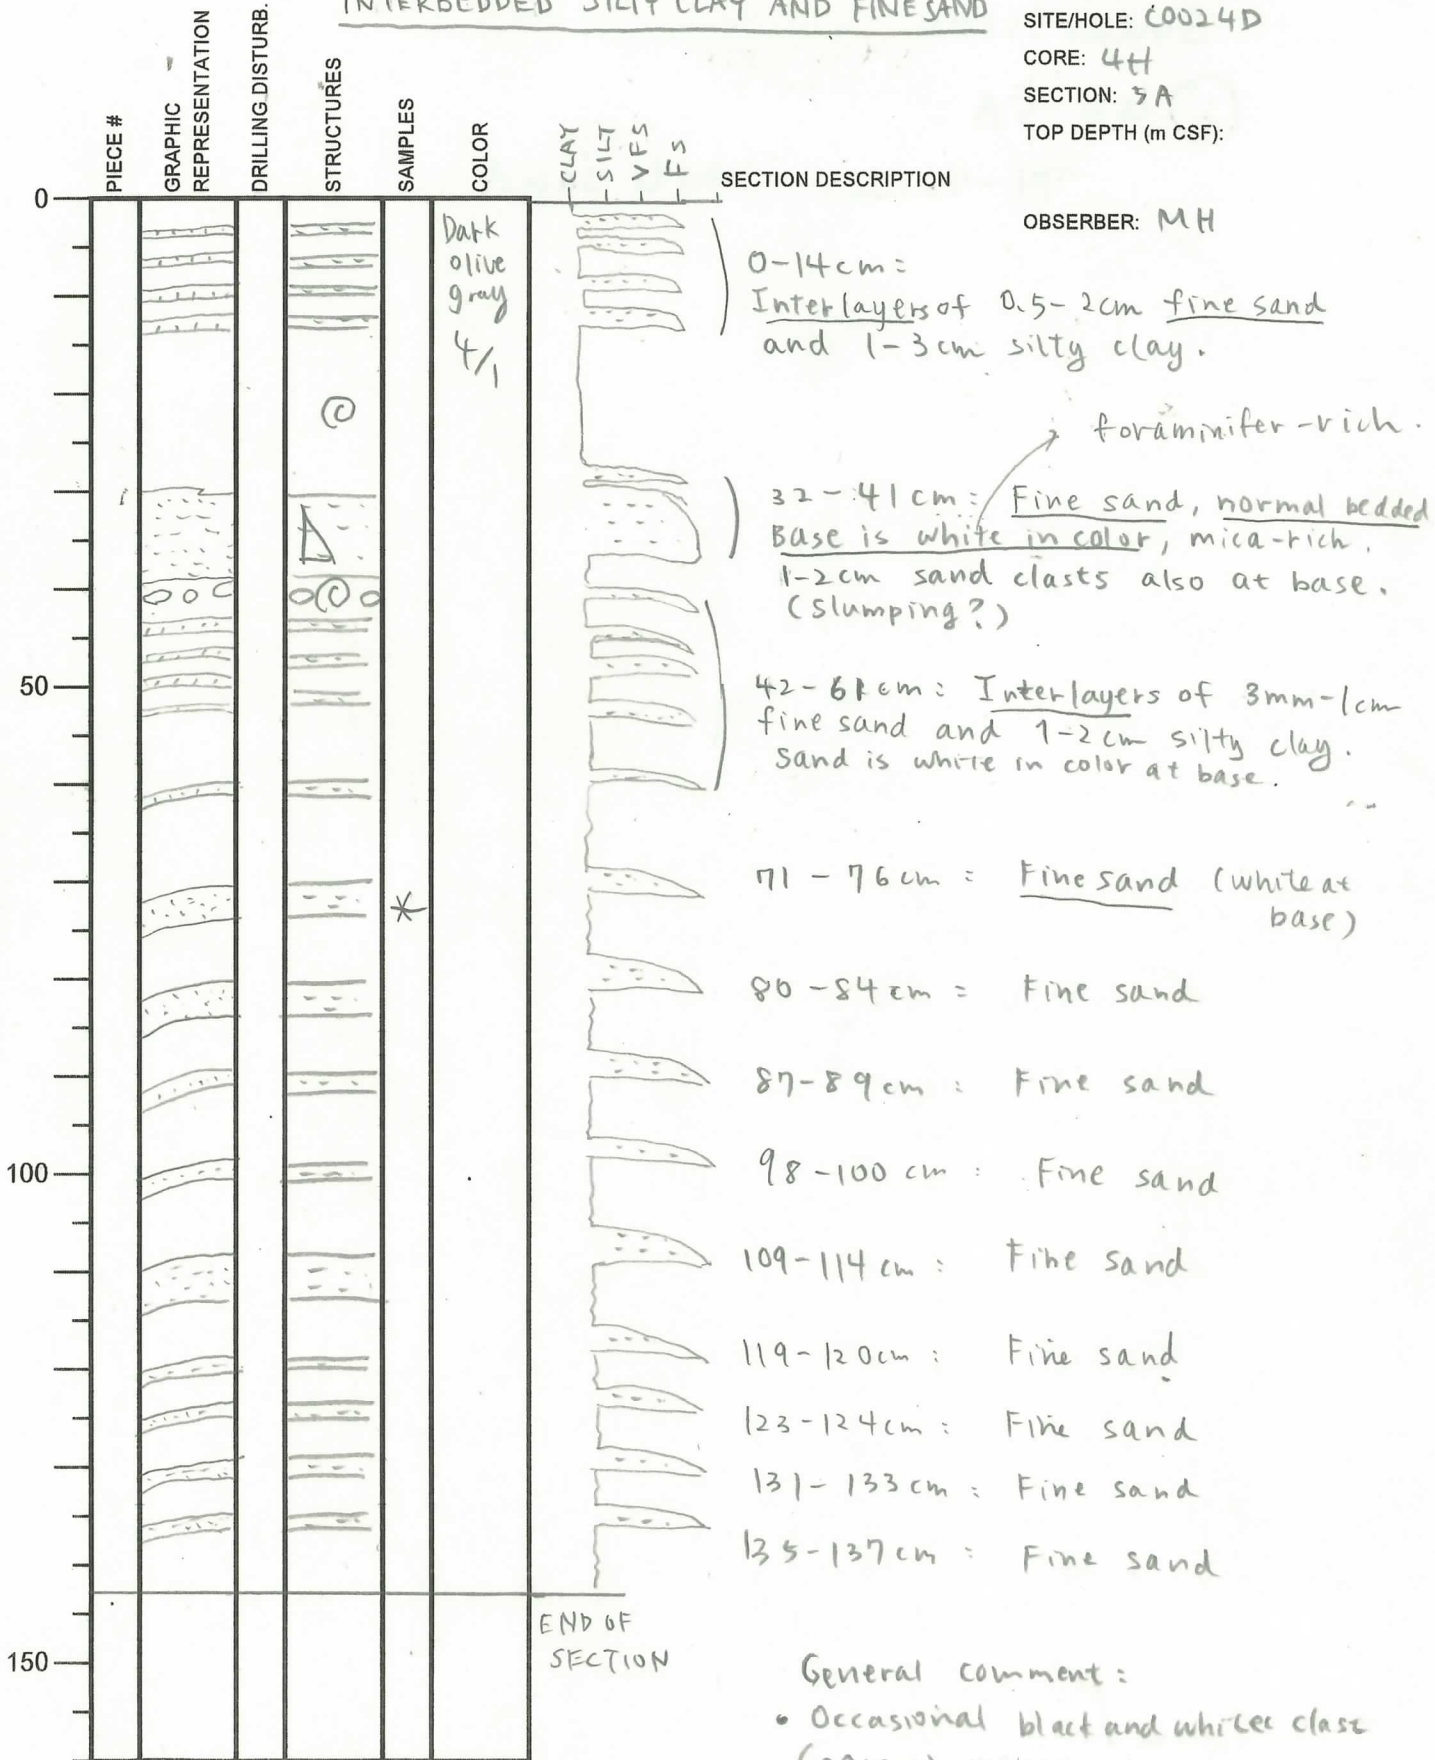 INTERBEDDED SILTY CLAY AND FINE SAND
SITE/HOLE: C0024D
CORE: 4H
SECTION: 5A
TOP DEPTH (m CSF):
OBSERBER: MH
PIECE #
GRAPHIC
REPRESENTATION
DRILLING DISTURB.
STRUCTURES
SAMPLES
COLOR
CLAY
SILT
VFS
FS
SECTION DESCRIPTION
0
Dark
olive
gray
4/1
0-14cm:
Interlayers of 0.5-2cm fine sand
and 1-3cm silty clay.
foraminifer-rich.
32-41cm: Fine sand, normal bedded
Base is white in color, mica-rich.
1-2cm sand clasts also at base.
(Slumping?)
50
42-61cm: Interlayers of 3mm-1cm
fine sand and 1-2cm silty clay.
Sand is white in color at base.
71-76cm: Fine sand (white at
base)
*
80-84cm: Fine sand
87-89cm: Fine sand
100
98-100 cm: Fine sand
109-114 cm: Fine sand
119-120cm: Fine sand
123-124cm: Fine sand
131-133cm: Fine sand
135-137cm: Fine sand
END OF
SECTION
150
General comment:
• Occasional black and white clast